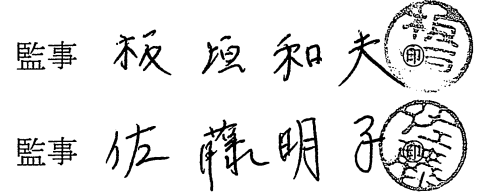 監事 板垣和夫 ㊞
監事 佐藤明子 ㊞